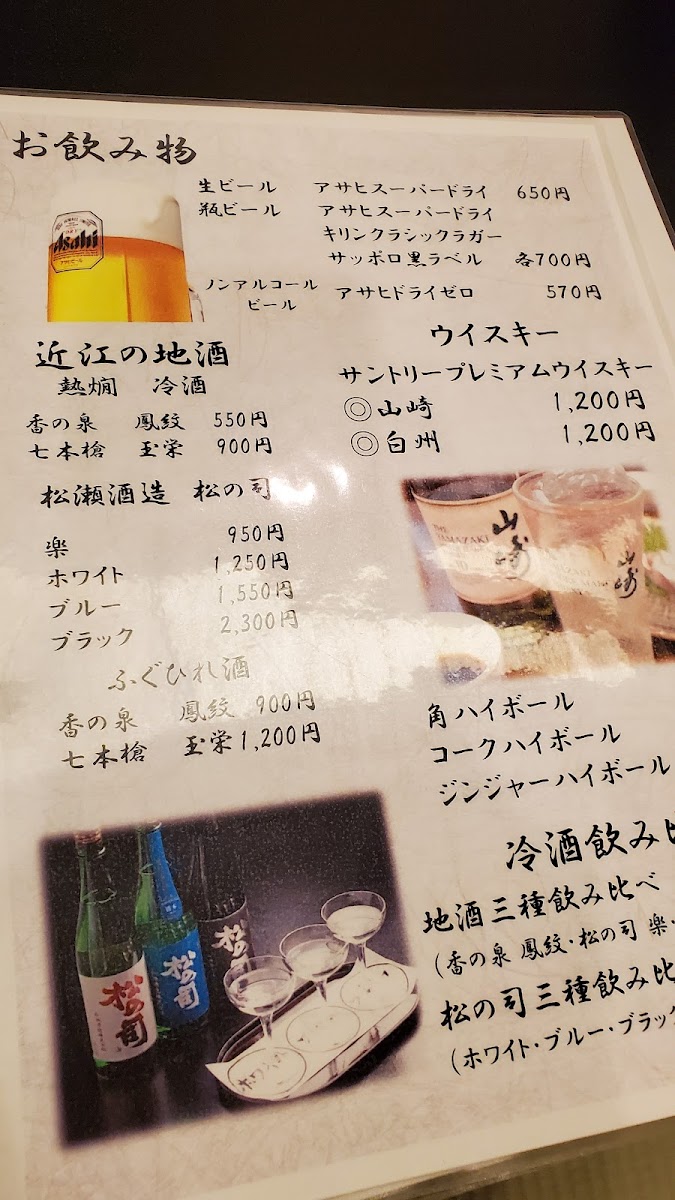 お飲み物
生ビール アサヒスーパードライ 650円
瓶ビール アサヒスーパードライ
キリンクラシックラガー
サッポロ黒ラベル 各700円
ノンアルコール
ビール アサヒドライゼロ 570円
Asahi
近江の地酒
熱燗 冷酒
香の泉 鳳紋 550円
七本槍 玉栄 900円
松瀬酒造 松の司
楽 950円
ホワイト 1,250円
ブルー 1,550円
ブラック 2,300円
ふぐひれ酒
香の泉 鳳紋 900円
七本槍 玉栄 1,200円
ウイスキー
サントリープレミアムウイスキー
◎山崎 1,200円
◎白州 1,200円
THE YAMAZAKI
山崎
山崎
角ハイボール
コークハイボール
ジンジャーハイボール
冷酒飲み
地酒三種飲み比べ
(香の泉 鳳紋・松の司 楽・
松の司三種飲み比
(ホワイト・ブルー・ブラック
松の司
松の司
松の司
ホワイト